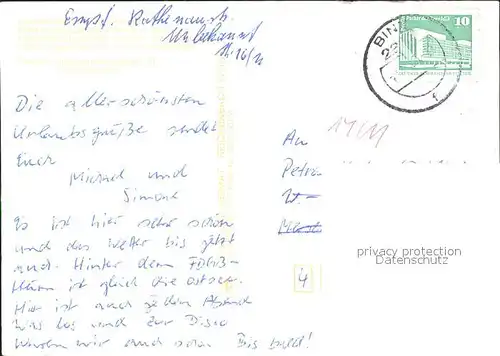 Empf. Rathenaustr.
Unbekannt
10
BINZ
22
Die allerschönsten
Urlaubsgrüße sendet
Euch
Michael und
Simone
Es ist hier sehr schön
und das Wetter bis jetzt
auch. Hinter dem FDGB-
Heim ist gleich die Ostsee.
Hier ist auch jeden Abend
was los und zur Disco
waren wir auch schon Bis bald!
An
Petra
privacy protection
Datenschutz
4